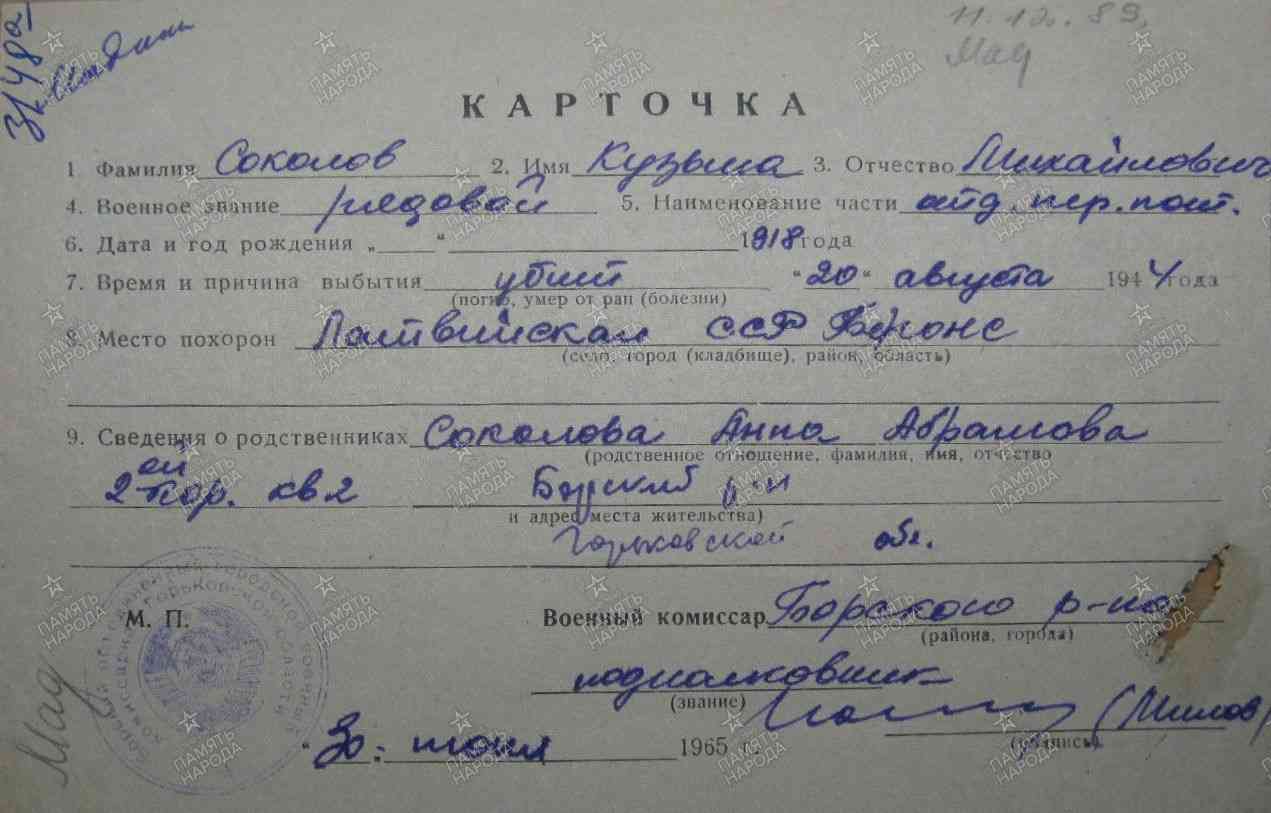 3148а
11.12.89.
Мад
КАРТОЧКА
1 Фамилия Соколов 2. Имя Кузьма 3. Отчество Михайлович
4. Военное звание рядовой 5. Наименование части отд. пер. полт.
6. Дата и год рождения „ “ 1918 года
7. Время и причина выбытия убит "20" августа 1944 года
(погиб, умер от ран (болезни)
8. Место похорон Латвийская ССР
(село, город (кладбище), район, область)
9. Сведения о родственниках Соколова Анна Абрамова
(родственное отношение, фамилия, имя, отчество
2ой пор. кв 2 Борский р-н
и адрес места жительства)
Горьковской обл.
М. П. Военный комиссар Борского р-на
(района, города)
подполковник
(звание)
(Милов)
(подпись)
"30" июня 1965 г.
Мад
ПАМЯТЬ НАРОДА